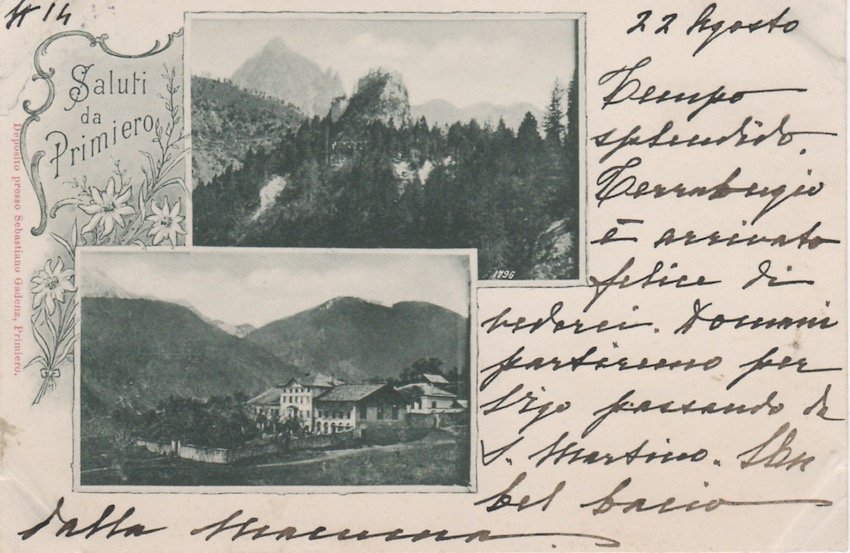 N 14
22 Agosto
Saluti
da
Primiero
Deposito presso Sebastiano Gadenz, Primiero.
1796
Tempo
splendido.
Terrabugio
è arrivato
felice di
vederci. Domani
partiremo per
Vigo passando da
S. Martino. Un
bel bacio
dalla